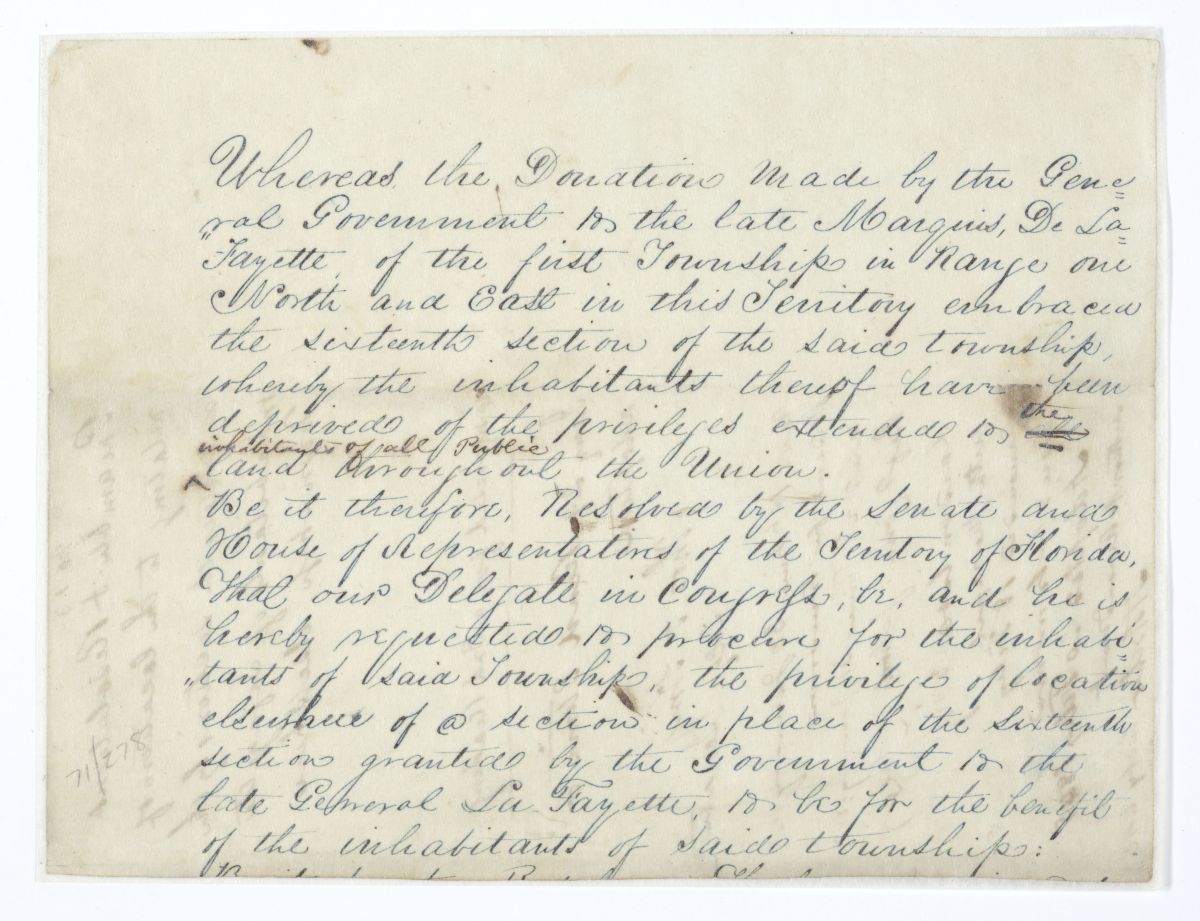 Whereas, the Donation made by the Gene=
"ral Government to the late Marquis, De La=
Fayette, of the first Township in Range one
North and East in this Territory embraced
the sixteenth section of the said township,
whereby the inhabitants thereof have been
deprived of the privileges extended to the
inhabitants of all Public
land throughout the Union.
Be it therefore, Resolved by the Senate and
House of Representatives of the Territory of Florida,
That our Delegate in Congress, be, and he is
hereby requested to procure for the inhabi=
"tants of said Township, the privilege of location
elsewhere of a section in place of the sixteenth
section granted by the Government to the
late General La Fayette, to be for the benefit
of the inhabitants of said township:
71/278